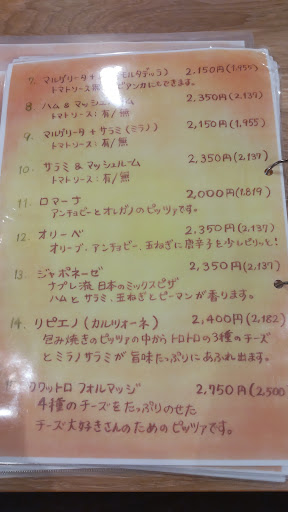 7. マルゲリータ+ハム(モルタデッラ) 2,150円(1,955)
トマトソース ビアンカにもできます。
8 ハム & マッシュルーム 2,350円(2,137)
トマトソース:有/無
9. マルゲリータ + サラミ(ミラノ) 2,150円(1,955)
トマトソース:有/無
10. サラミ & マッシュルーム 2,350円(2,137)
トマトソース:有/無
11. ロマーナ 2,000円(1,819)
アンチョビーとオレガノのピッツァです。
12. オリーベ 2,350円(2,137)
オリーブ、アンチョビー、玉ねぎに唐辛子を少しピリッと!
13. ジャポネーゼ 2,350円(2,137)
ナプレ流 日本のミックスピザ
ハムと サラミ、玉ねぎとピーマンが香ります。
14. リピエノ(カルツォーネ) 2,400円(2,182)
包み焼きのピッツァの中から トロトロの3種のチーズ
とミラノサラミが 旨味たっぷりにあふれ出ます。
15 クワットロ フォルマッジ 2,750円(2,500
4種のチーズを たっぷりのせた
チーズ大好きさんのためのピッツァです。